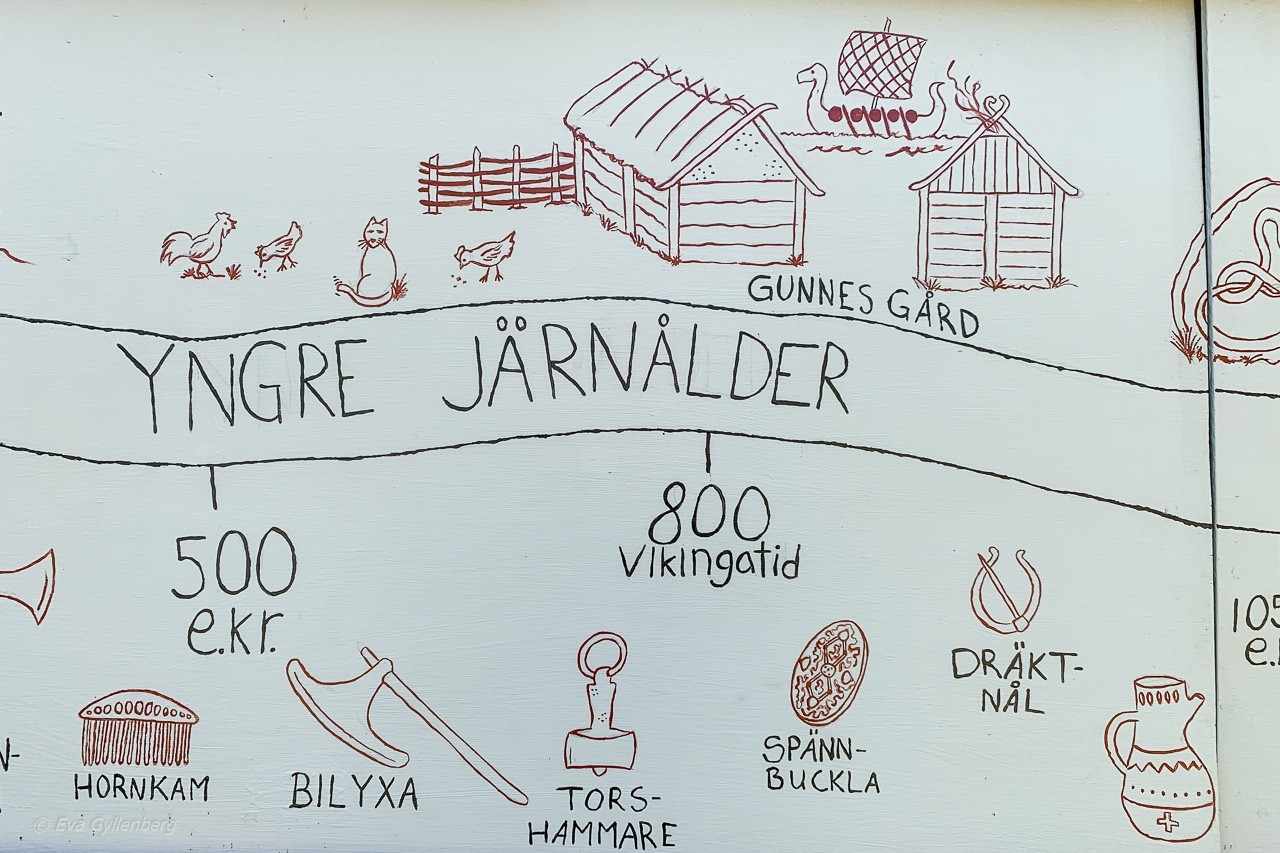 GUNNES GÅRD
YNGRE JÄRNÅLDER
500
e.kr.
800
Vikingatid
HORNKAM
BILYXA
TORS-
HAMMARE
SPÄNN-
BUCKLA
DRÄKT-
NÅL
© Eva Gyllenberg